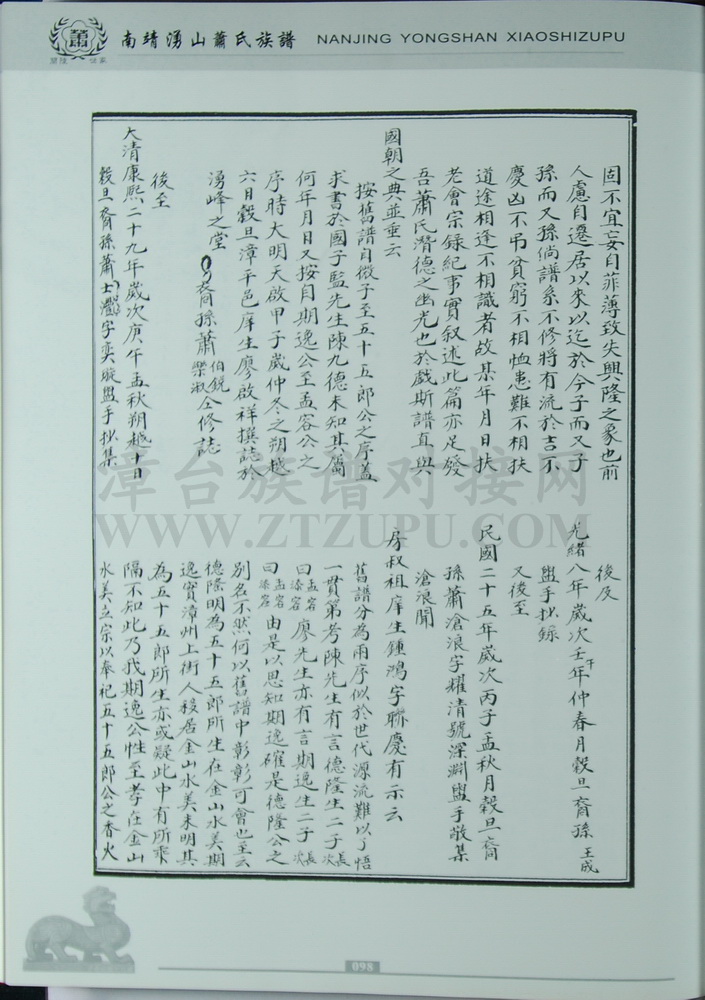 南靖湧山蕭氏族譜 NANJING YONGSHAN XIAOSHIZUPU
蕭
固不宜妄自菲薄致失興隆之象也前
人慮自遷居以來以迄於今子而又子
孫而又孫倘譜系不修將有流於吉不
慶凶不弔貧窮不相恤患難不相扶
道途相逢不相識者故某年月日扶
老會宗錄紀事實叙述此篇亦足發
吾蕭氏潛德之幽光也於戲斯譜直與
國朝之典並垂云
按舊譜自微子至五十五郎公之序蓋
求書於國子監先生陳九德未知其屬
何年月日又按自期逸公至孟容公之
序時大明天啟甲子歲仲冬之朔越
六日穀旦漳平邑庠生廖啟祥撰誌於
湧峰之堂 裔孫蕭伯銳樂淑仝修誌
後至
大清康熙二十九年歲次庚午孟秋朔越十日
穀旦裔孫蕭士字奕盥手抄集
後及
光緒八年歲次壬午年仲春月穀旦裔孫王成
盥手抄錄
又後至
民國二十五年歲次丙子孟秋月穀旦裔
孫蕭滄浪字耀清號深淵盥手敬集
滄浪聞
房叔祖庠生鍾鴻字聯慶有示云
舊譜分為兩序似於世代源流難以了悟
一貫第考陳先生有言德隆生二子長次
曰孟容添容廖先生亦有言期逸生二子長次
曰孟容添容由是以思知期逸確是德隆公之
別名不然何以舊譜中彰彰可會也至云
德隆明為五十五郎所生在金山水美期
逸實漳州上街人移居金山水美未明其
為五十五郎所生亦或疑此中有所乖
隔不知此乃我期逸公性至孝在金山
水美立宗以奉祀五十五郎公之香火
漳台族谱对接网
WWW.ZTZUPU.COM
098